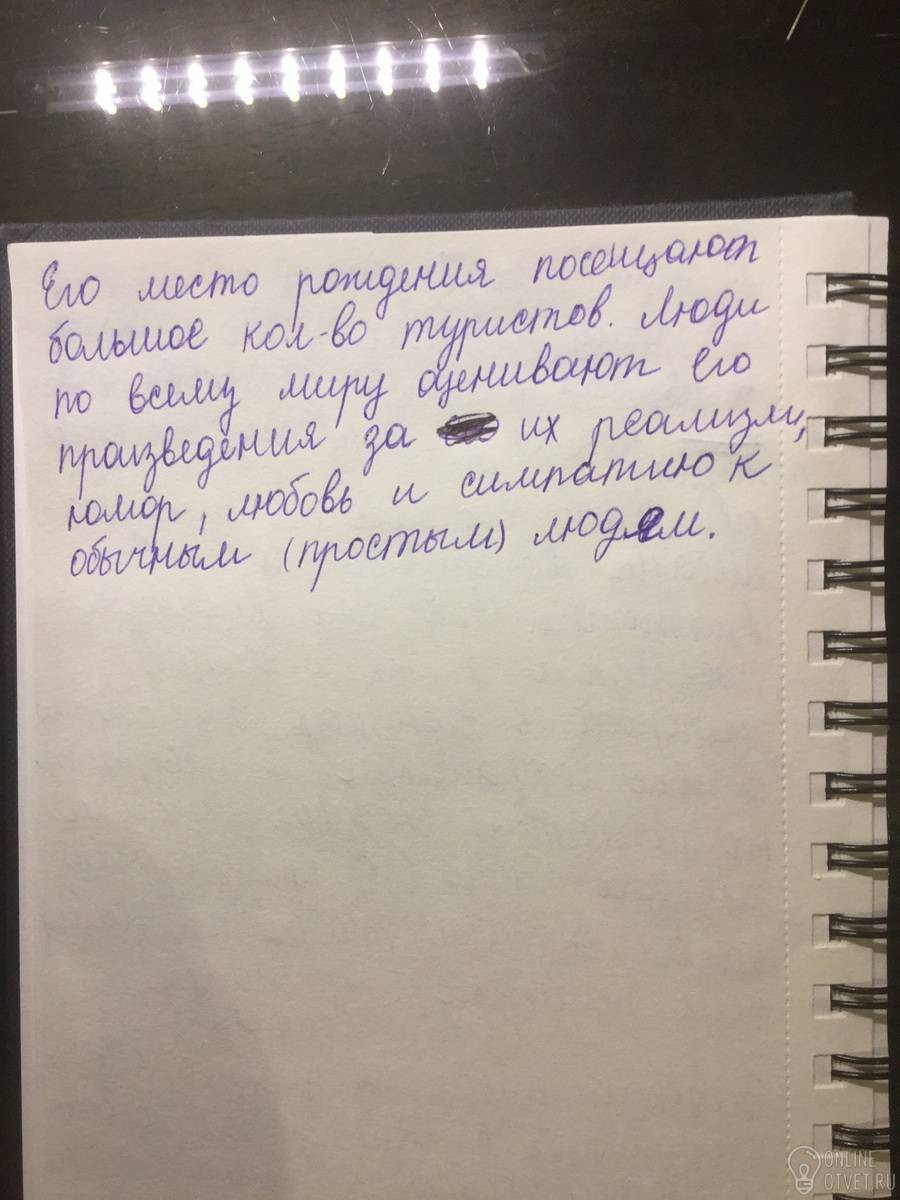 Его место рождения посещают
большое кол-во туристов. Люди
по всему миру оценивают его
произведения за их реализм,
юмор, любовь и симпатию к
обычным (простым) людям.
ONLINE
OTVET.RU